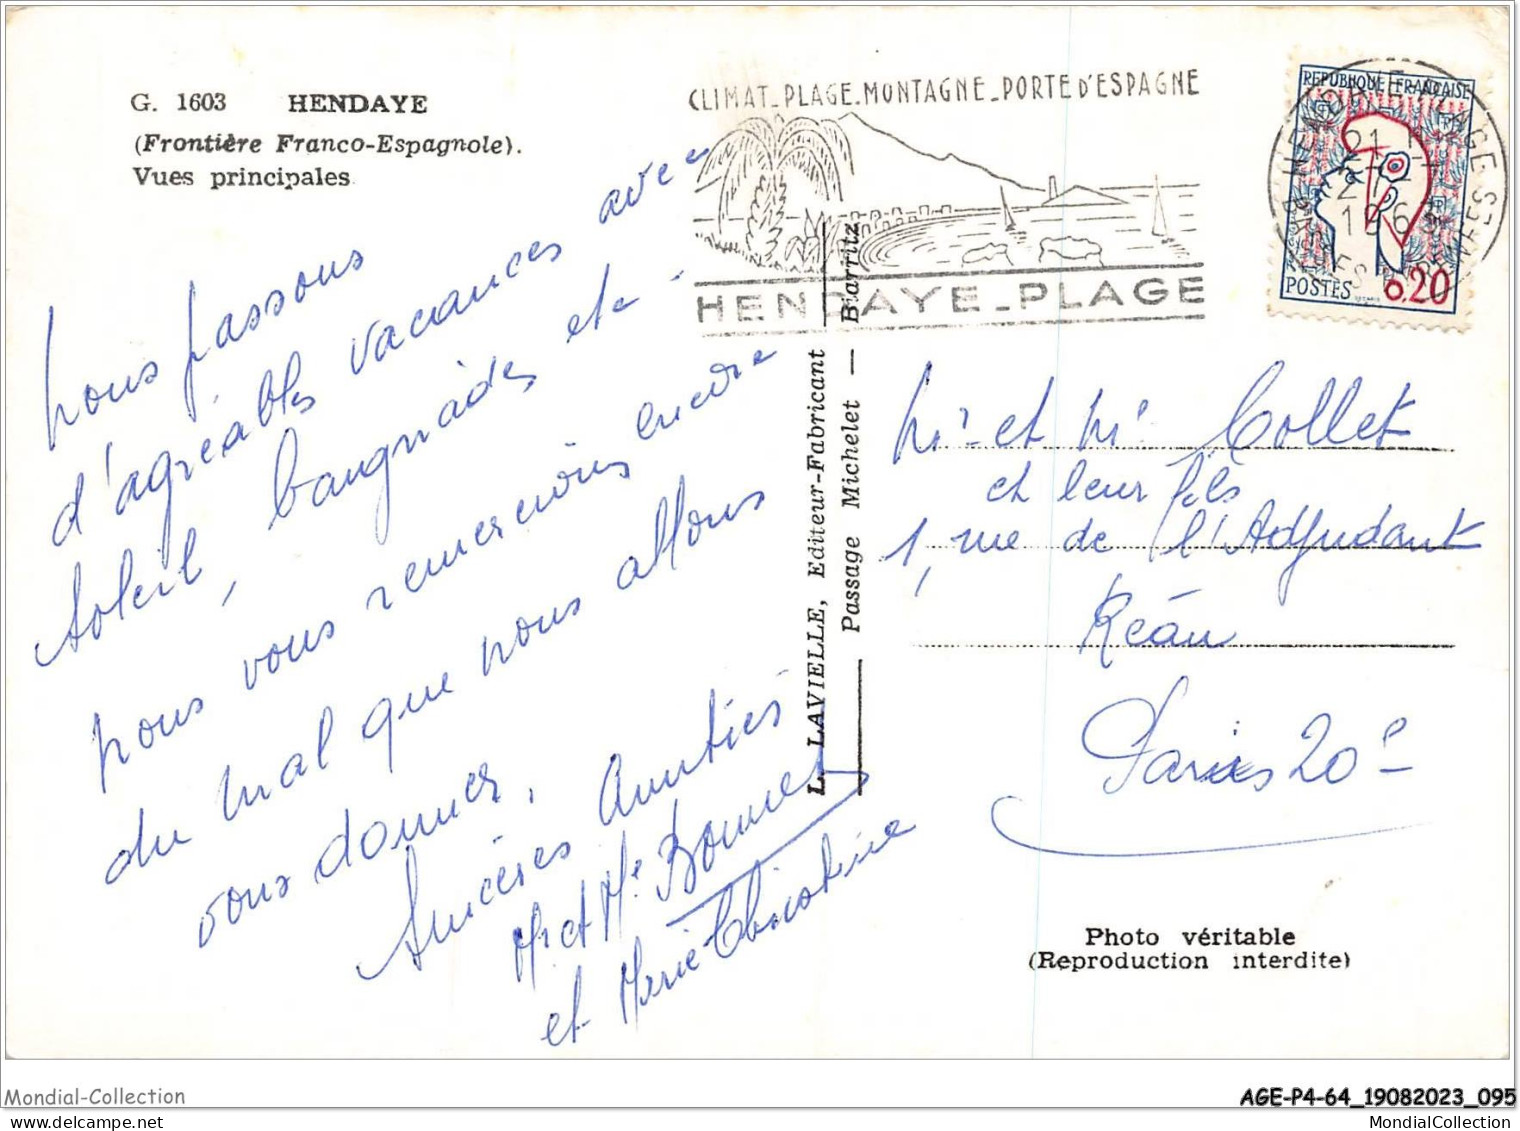 G. 1603 HENDAYE
(Frontière Franco-Espagnole).
Vues principales
CLIMAT_PLAGE_MONTAGNE_PORTE D'ESPAGNE
HENDAYE_PLAGE
REPUBLIQUE FRANÇAISE
POSTES 0,20
nous passons
d'agréables vacances avec
soleil, baignades etc
nous vous remercions encore
du mal que nous allons
vous donner,
Sincères Amitiés
Mr et Me Bonnet
et Marie Christine
L. LAVIELLE, Editeur-Fabricant
Passage Michelet — Biarritz
Mr et Me Collet
et leur fils
1, rue de l'Adjudant
Réau
Paris 20e
Photo véritable
(Reproduction interdite)
Mondial-Collection
AGE-P4-64_19082023_095
MondialCollection